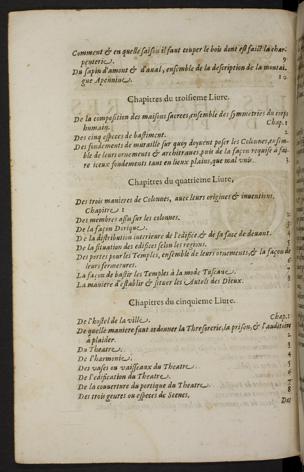 Comment & en quelle saison il faut couper le bois dont est faict la char-
penterie. 9
Du sapin d'amont & d'aval, ensemble de la description de la montai-
gne Apennine. 10
Chapitres du troisieme Liure.
De la composition des maisons sacrees, ensemble des symmetries du corps
humain. Chap. 1
Des cinq especes de bastiment. 2
Des fondements de muraille sur quoy doyuent poser les Colonnes, ensem-
ble de leurs ornements & architraues, puis de la façon requise à fai-
re iceux fondements tant en lieux plains, que mal vnis. 3
Chapitres du quatrieme Liure,
Des trois manieres de Colonnes, auec leurs origines & inuentions,
Chapitre 1
Des membres assis sur les colonnes.
De la façon Dorique.
De la distribution interieure de l'edifice & de sa face de deuant.
De la situation des edifices selon les regions.
Des portes pour les Temples, ensemble de leurs ornements, & la façon de
leurs fermetures.
La façon de bastir les Temples à la mode Tuscane.
La maniere d'establir & situer les Autels des Dieux.
Chapitres du cinquieme Liure.
De l'hostel de la ville. Chap. 1
De quelle maniere faut ordonner la Thresorerie, la prison, & l'auditoire
à plaider. 2
Du Theatre.
De l'harmonie. 4
Des vases ou vaisseaux du Theatre. 5
De l'edification du Theatre. 6
De la couuerture du portique du Theatre. 7
Des trois genres ou especes de Scenes, 8
Des